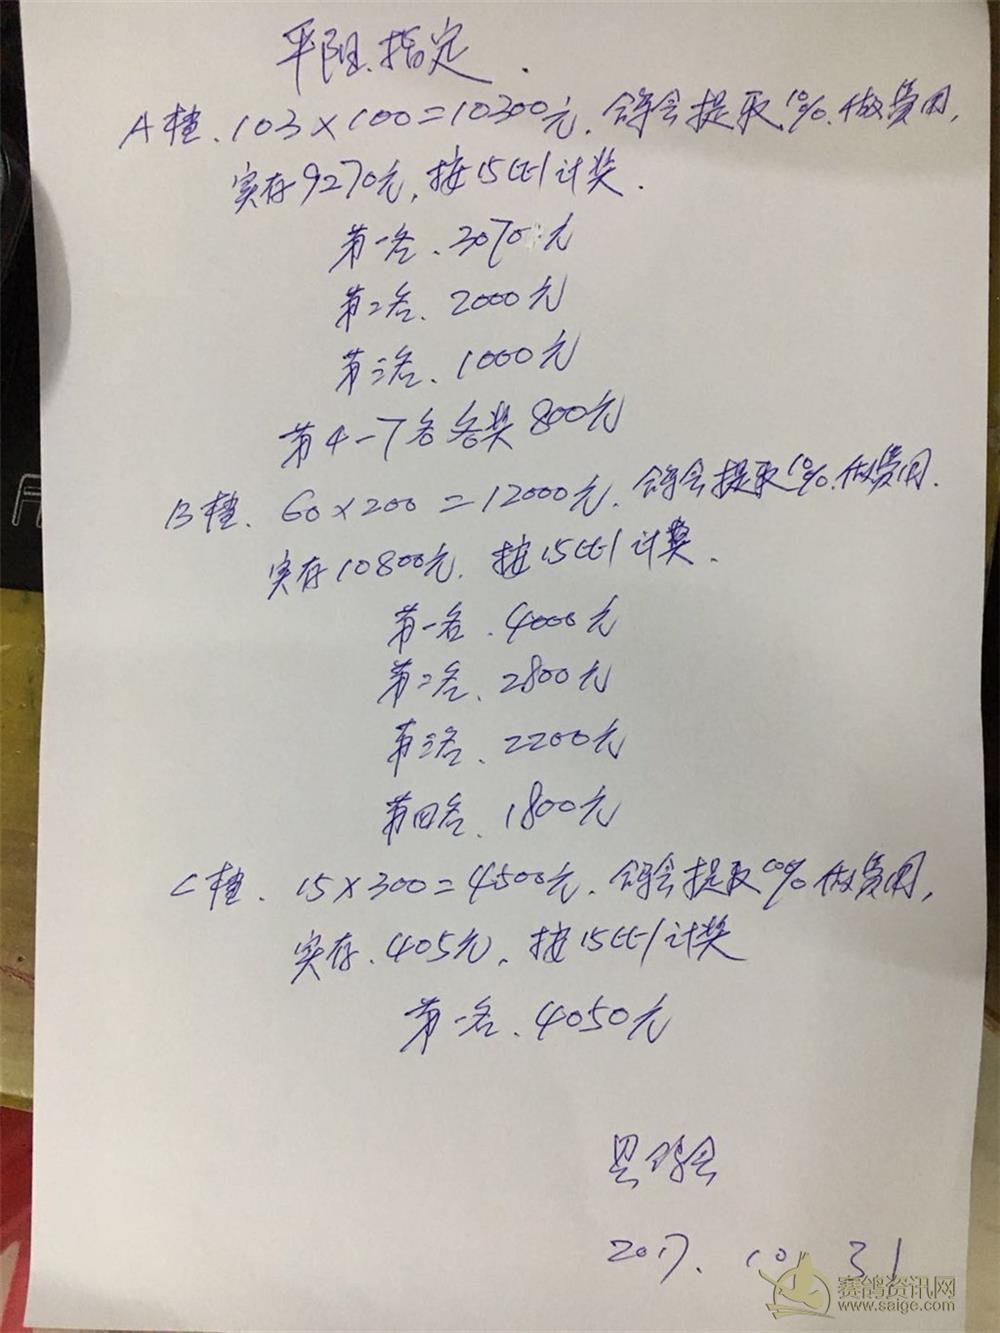 平阻.指定.
A檀.103×100=10300元.鸽会提取10%.做费用,
实存9270元,按15比1计奖.
第一名、3070元
第二名、2000元
第三名、1000元
第4-7名各奖800元
B檀.60×200=12000元.鸽会提取10%.做费用.
实存10800元.按15比1计奖.
第一名.4000元
第二名、2800元
第三名、2200元
第四名、1800元
C檀.15×300=4500元.鸽会提取10%做费用,
实存.405元,按15比1计奖
第一名、4050元
鸽会
2017.10.31
赛鸽资讯网
www.saige.com